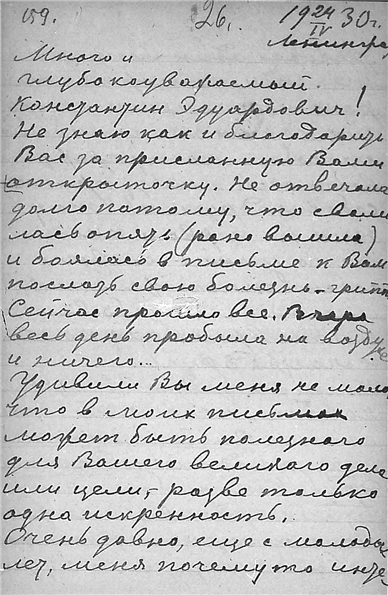 159. 26. 19 24/IV 30 г.
Ленинград
Много и
глубокоуважаемый
Константин Эдуардович!
Не знаю как и благодарить
Вас за присланную Вами
открыточку. Не отвечала
долго потому, что свали
лась опять (рано вышла)
и боялась в письме к Вам
послать свою болезнь - грипп
Сейчас прошло все. Вчера
весь день пробыла на воздухе
и ничего...
Удивили Вы меня не мало,
что в моих письмах
может быть полезного
для Вашего великого дела
или цели, - разве только
одна искренность.
Очень давно, еще с молодых
лет, меня почему то инте